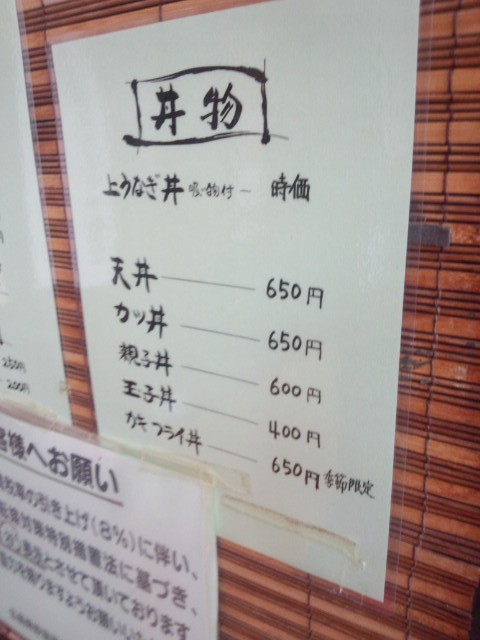 丼物
上うなぎ丼 吸い物付 時価
天丼 650円
カツ丼 650円
親子丼 600円
玉子丼 400円
カキフライ丼 650円 季節限定
250円
200円
客様へお願い
の引き上げ(8%)に伴い、
対策特別措置法に基づき、
表示とさせて頂いております